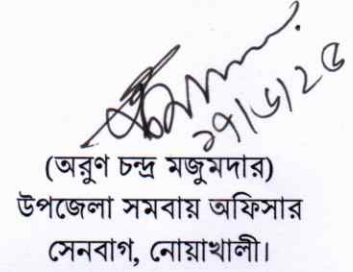 ২৭/৬/২৫
(অরুণ চন্দ্র মজুমদার)
উপজেলা সমবায় অফিসার
সেনবাগ, নোয়াখালী।